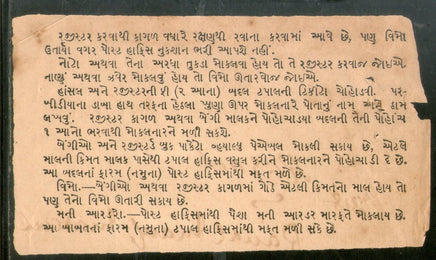 રજીસ્ટર કરવાથી કાગળ વધારે રક્ષણથી રવાના કરવામાં આવે છે, પણ વિમો
ઉતાર્યા વગર પોસ્ટ ઑફિસ નુકશાન ભરી આપશે નહીં.
નોટો અથવા તેના અરધા ટુકડા મોકલવા હોય તો તે રજીસ્ટર કરવાજ જોઇએ.
નાણું અથવા ઝવેર મોકલવું હોય તો વિમો ઊતારવોજ જોઇએ.
હાંસલ અને રજીસ્ટરની ફી (ર આના) બદલ ટપાલની ટિકીટો ચોહોડવી. પર-
બીડીયાના ડાબા હાથ તરફના હેઠલા ખુણા ઉપર મોકલનારે પોતાનું નામ અને ઠામ
લખવું. રજીસ્ટર કાગળ અથવા બેંગી માલકને પોહોચાડયા બદલની તેની પોહોંચ
૧ આનો ભરવાથી મોકલનારને મળી સકશે.
બેંગીઓ અને રજીસ્ટર્ડ બુક પાકેટો વ્હ્યાલ્યુ પેએબલ મોકલી સકાય છે, એટલે
માલની કિમત માલક પાસેથી ટપાલ ઑફિસ વસુલ કરીને મોકલનારને પોહોચાડી દે છે.
આ બદલનાં ફારમ (નમુના) પોસ્ટ ઑફિસમાંથી મફત મળે છે.
વિમો.—બેંગીઓ અથવા રજીસ્ટર કાગળમાં ગમે એટલી કિમતનો માલ હોય તો
પણ તેનો વિમો ઉતારી સકાય છે.
મની આરડરો.—પોસ્ટ ઑફિસમાંથી પૈસા મની આરડર મારફતે મોકલાય છે.
આ બાબતનાં ફારમ (નમુના) ટપાલ ઑફિસમાંથી મફત મળી સકે છે.